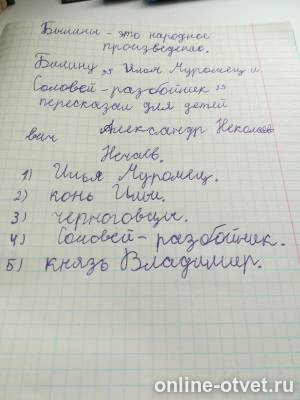 Былины - это народное
произведение.
Билину ,, Илья Муромец и
Соловей - разобойник "
пересказал для детей
Александр Неколаев
вич
Нечаев.
1) Илья Муромец.
2) конь Ильи.
3) черноговцы.
4) Соловей - разобойник.
5) князь Владимир.
online-otvet.ru